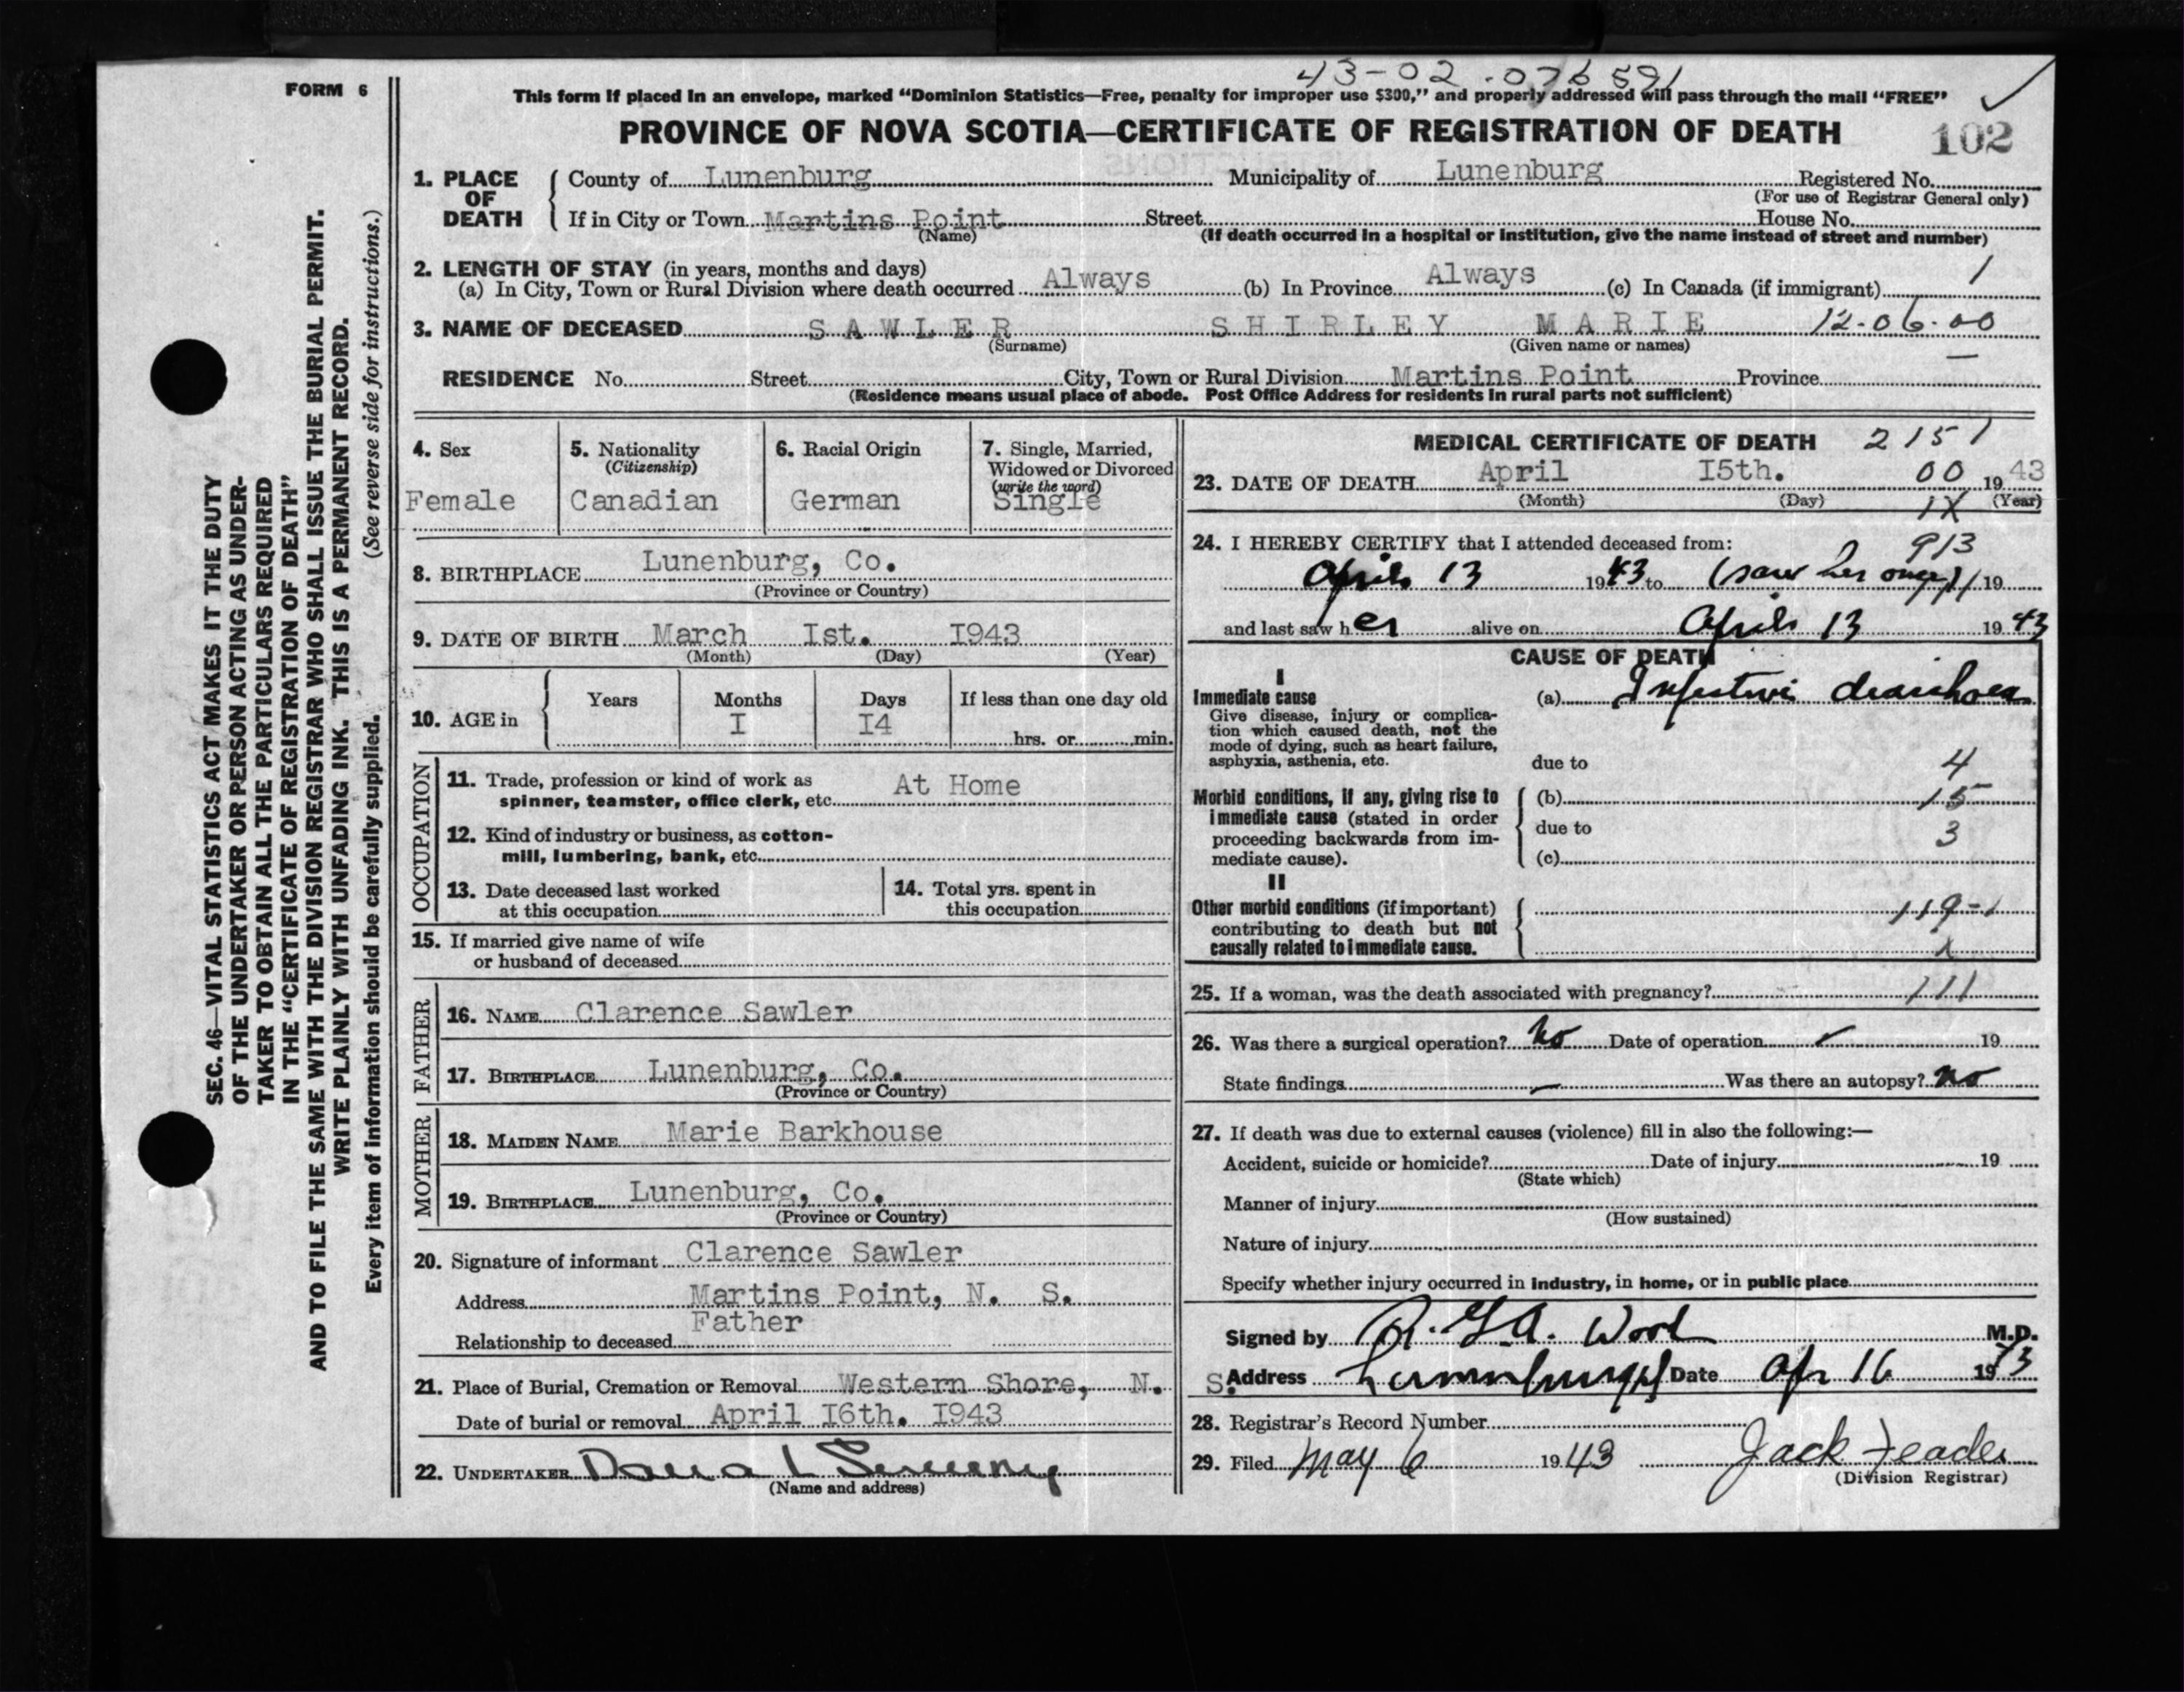 43-02-076591
FORM 6
This form if placed in an envelope, marked “Dominion Statistics—Free, penalty for improper use $300,” and properly addressed will pass through the mail “FREE”
PROVINCE OF NOVA SCOTIA—CERTIFICATE OF REGISTRATION OF DEATH
102
1. PLACE OF DEATH
County of Lunenburg Municipality of Lunenburg Registered No.
(For use of Registrar General only)
If in City or Town Martins Point Street House No.
(Name) (If death occurred in a hospital or institution, give the name instead of street and number)
2. LENGTH OF STAY (in years, months and days)
(a) In City, Town or Rural Division where death occurred Always (b) In Province Always (c) In Canada (if immigrant) 1
3. NAME OF DECEASED SAWLER SHIRLEY MARIE 12-06-00
(Surname) (Given name or names)
RESIDENCE No. Street City, Town or Rural Division Martins Point Province
(Residence means usual place of abode. Post Office Address for residents in rural parts not sufficient)
SEC. 46—VITAL STATISTICS ACT MAKES IT THE DUTY
OF THE UNDERTAKER OR PERSON ACTING AS UNDER-
TAKER TO OBTAIN ALL THE PARTICULARS REQUIRED
IN THE “CERTIFICATE OF REGISTRATION OF DEATH”
AND TO FILE THE SAME WITH THE DIVISION REGISTRAR WHO SHALL ISSUE THE BURIAL PERMIT.
WRITE PLAINLY WITH UNFADING INK. THIS IS A PERMANENT RECORD.
Every item of information should be carefully supplied. (See reverse side for instructions.)
4. Sex
Female
5. Nationality
(Citizenship)
Canadian
6. Racial Origin
German
7. Single, Married,
Widowed or Divorced
(write the word)
Single
8. BIRTHPLACE Lunenburg, Co.
(Province or Country)
9. DATE OF BIRTH March Ist. I943
(Month) (Day) (Year)
10. AGE in Years Months Days If less than one day old
I I4 hrs. or min.
OCCUPATION
11. Trade, profession or kind of work as
spinner, teamster, office clerk, etc. At Home
12. Kind of industry or business, as cotton-
mill, lumbering, bank, etc.
13. Date deceased last worked
at this occupation
14. Total yrs. spent in
this occupation
15. If married give name of wife
or husband of deceased
FATHER
16. NAME Clarence Sawler
17. BIRTHPLACE Lunenburg, Co.
(Province or Country)
MOTHER
18. MAIDEN NAME Marie Barkhouse
19. BIRTHPLACE Lunenburg, Co.
(Province or Country)
20. Signature of informant Clarence Sawler
Address Martins Point, N. S.
Relationship to deceased Father
21. Place of Burial, Cremation or Removal Western Shore, N. S.
Date of burial or removal April I6th. I943
22. UNDERTAKER
(Name and address)
MEDICAL CERTIFICATE OF DEATH 2151
23. DATE OF DEATH April I5th. 00 1943
(Month) (Day) (Year)
1X
24. I HEREBY CERTIFY that I attended deceased from: 913
April 13 1943 to (saw her once) 19
and last saw her alive on April 13 1943
CAUSE OF DEATH
I
Immediate cause
Give disease, injury or complica-
tion which caused death, not the
mode of dying, such as heart failure,
asphyxia, asthenia, etc.
(a) Infective diarrhoea
due to 4
Morbid conditions, if any, giving rise to
immediate cause (stated in order
proceeding backwards from im-
mediate cause).
(b) 15
due to 3
(c)
II
Other morbid conditions (if important)
contributing to death but not
causally related to immediate cause.
119-1
X
25. If a woman, was the death associated with pregnancy? 111
26. Was there a surgical operation? No Date of operation 19
State findings — Was there an autopsy? No
27. If death was due to external causes (violence) fill in also the following:—
Accident, suicide or homicide? Date of injury 19
(State which)
Manner of injury
(How sustained)
Nature of injury
Specify whether injury occurred in industry, in home, or in public place
Signed by R. G. A. Wood M.D.
Address Lunenburg Date Apr 16 1943
28. Registrar's Record Number
29. Filed May 6 1943 Jack
(Division Registrar)